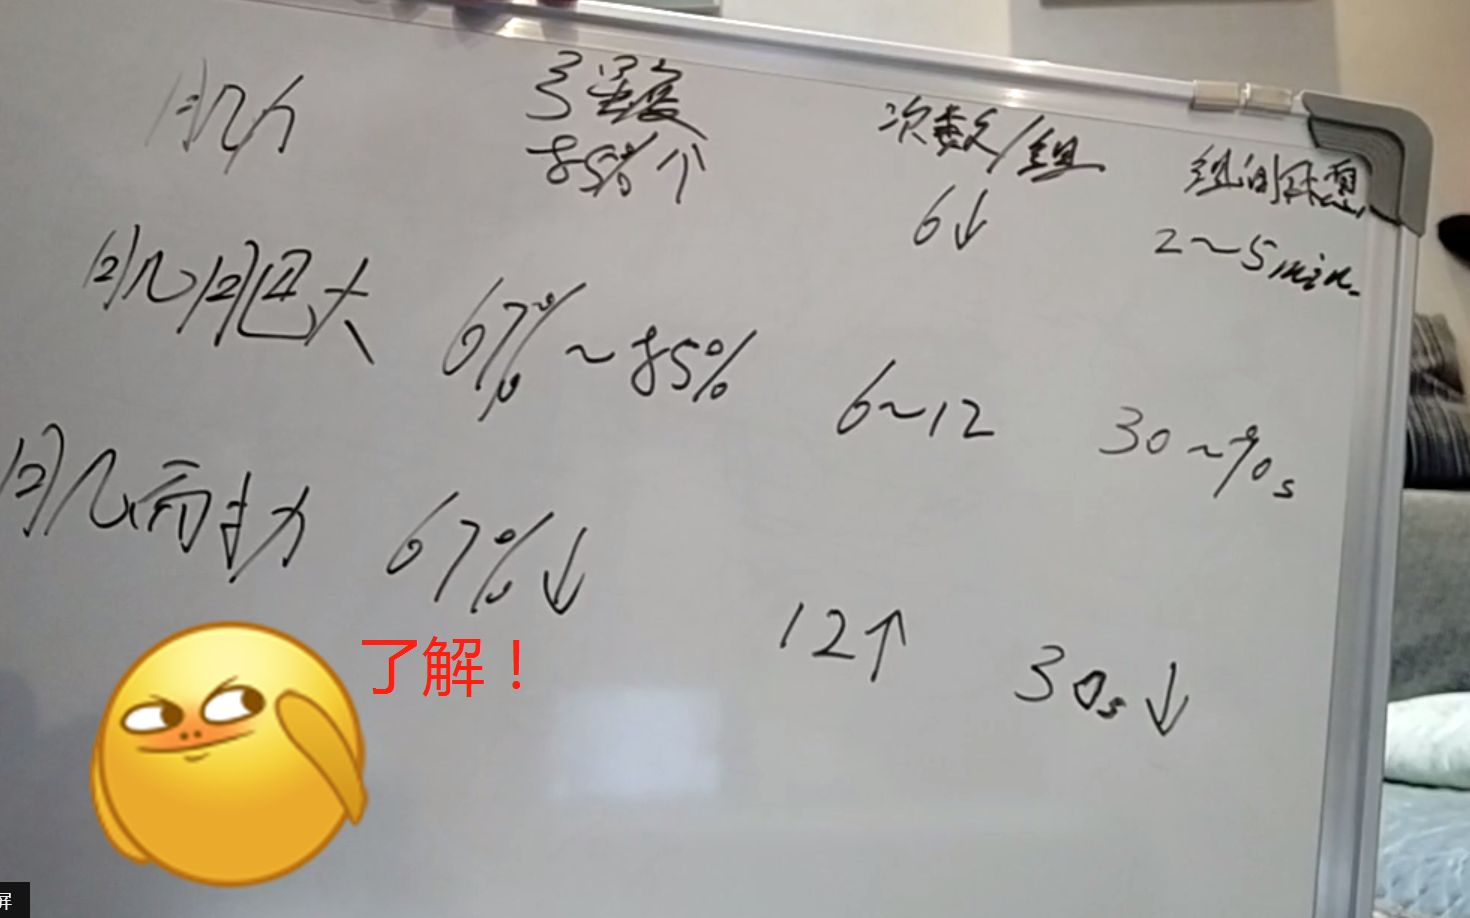 强度 次数/组 组间休息
肌力 85%个 6↓ 2~5min.
肌肥大 67%~85% 6~12 30~90s
肌耐力 67%↓ 12↑ 30s↓
了解！
屏